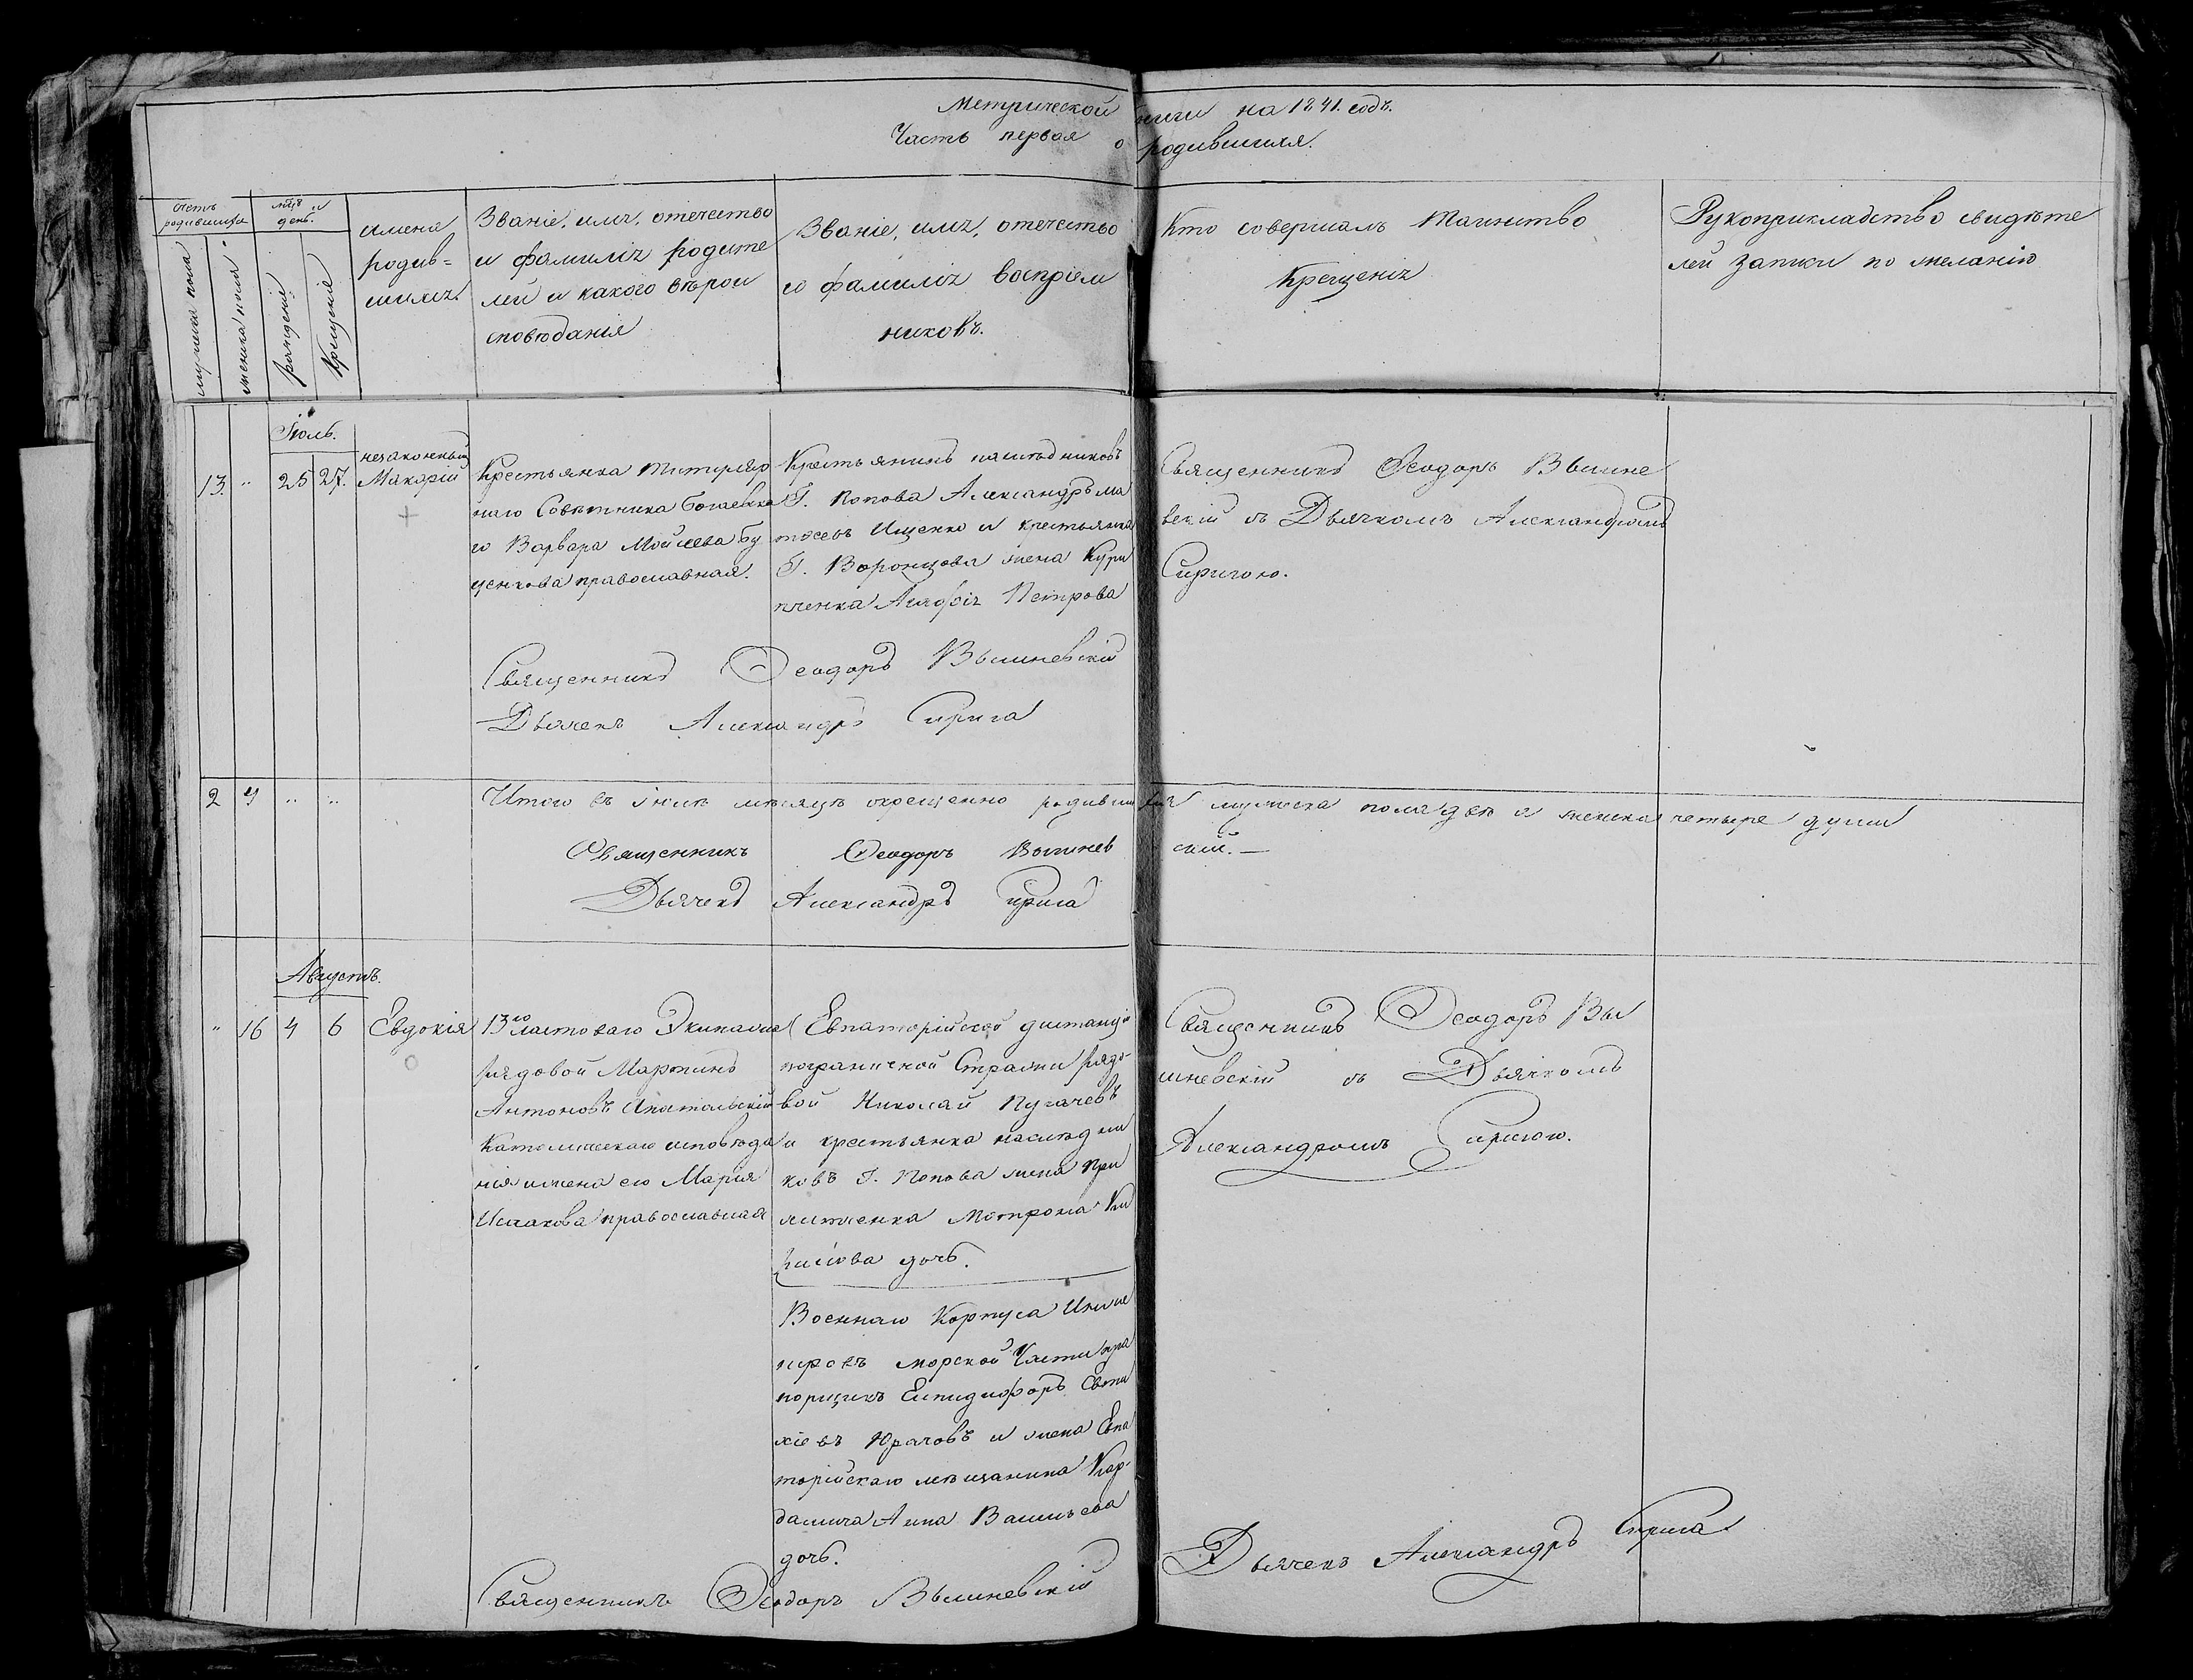 Метрической книги на 1841. годъ.
Часть первая о родившихся.
Счетъ родившихся
мужеска пола
женска пола
мѣц и день.
рожденіе
Крещеніе
имена родив=
шихъ.
Званіе, имя, отечество
и фамилія родите
лей и какого вѣрои
сповѣданія
Званіе, имя, отечество
и фамилія воспріем
никовъ.
Кто совершалъ Таинство
Крещенія
Рукоприкладство свидѣте
лей записи по желанію
Іюль.
13. " 25 27.
незаконный
Макарій
Крестьянка Титуляр
наго Совѣтника Богаевска
го Варвара Моисеева Бу
ценкова православная.
Крестьянинъ наслѣдниковъ
Г. Попова Александръ Ма
тѣевъ Ищенко и крестьянка
Г. Воронцова жена Кури
пченка Агафія Петрова
Священникъ Ѳеодоръ Выше
вскій съ Дьячкомъ Александромъ
Сиригою.
Священникъ Ѳеодоръ Вышневскій
Дьячекъ Александръ Сирига
2 4 " "
Итого въ Іюлѣ мѣсяцѣ окрещенно родившихся мужеска пола двѣ и женска четыре души
Священникъ Ѳеодоръ Вышневскій.—
Дьячекъ Александръ Сирига
Августъ.
" 16 4 6 Евдокія
13го ластоваго Экипажа
рядовой Мартинъ
Антоновъ
Католическаго исповѣда
нія и жена его Марія
Исаакова православная
Евпаторійской дистанціи
пограничной Стражи рядо-
вой Николай Пугачевъ
и крестьянка наслѣдни
ковъ Г. Попова жена При
Матрона Ки
рилова дочь.
Военнаго Корпуса Инже
неровъ морской Части пра
порщикъ Елпидифоръ Евста
хіевъ Юрасовъ и жена Евпа
торійскаго мѣщанина Кор-
Анна Васильева
дочь.
Священникъ Ѳеодоръ Вы
шневскій съ Дьячкомъ
Александромъ Сиригою.
Священникъ Ѳеодоръ Вышневскій
Дьячекъ Александръ Сирига